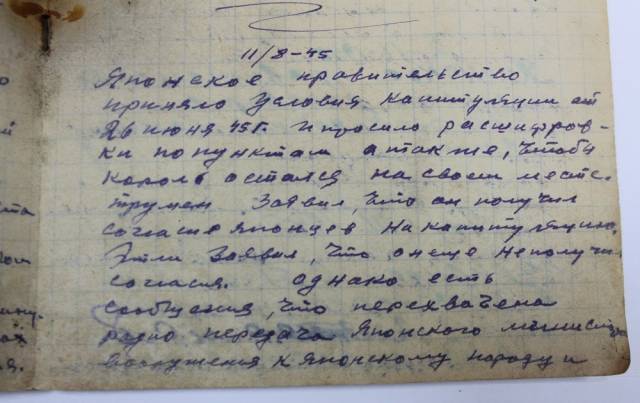 11/8-45
Японское правительство
приняло условия капитуляции от
26 июня 45 г. и просило расшифров-
ки по пунктам а также, чтобы
король остался на своем месте.
Трумен заявил, что он получил
согласие японцев на капитуляцию.
Этли заявил, что он еще не получил
согласия. Однако есть
сообщения, что перехвачена
радио передача Японского
вооружения к Японскому народу и